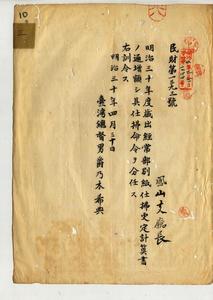 10
三
民財第一三九三號
鳳山支廳長
明治三十年度歲出經常部別紙仕拂更定計算書
ノ通增額シ其仕拂命令ヲ分任ス
右訓令ス
明治三十年四月三十日
臺灣總督男爵乃木希典